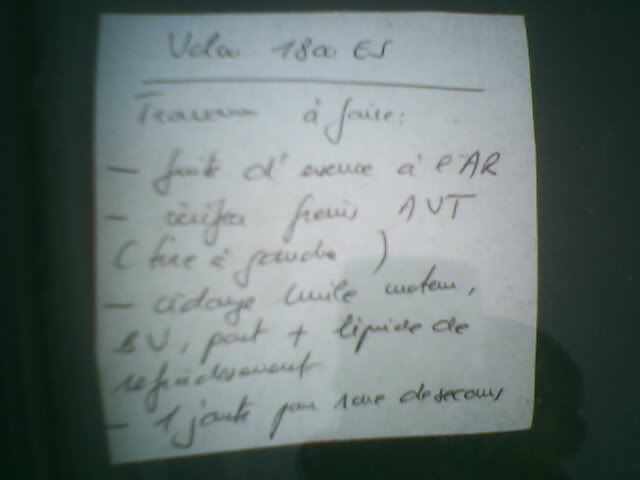 Volvo 1800 ES
Travaux à faire:
- fuite d'essence à l'AR
- vérifier freins AVT
(tire à gauche)
- vidange huile moteur,
BV, pont + liquide de
refroidissement
- 1 jante pour roue de secours